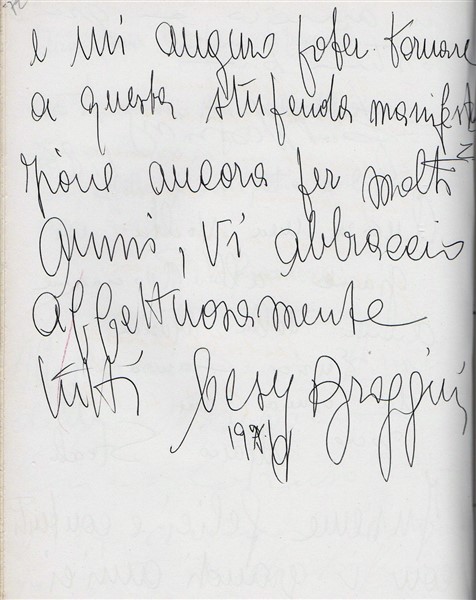 e mi auguro poter tornare
a questa stupenda manifesta
zione ancora per molti
anni, vi abbraccio
affettuosamente
tutti Cesy Broggini